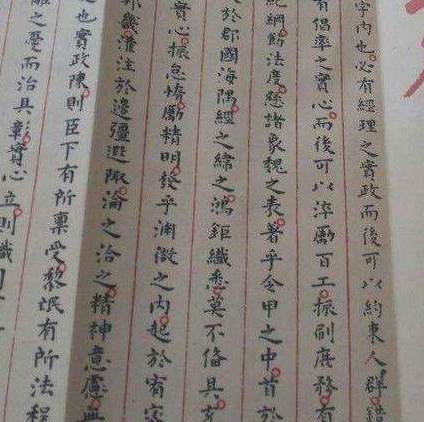 宇内也必有經理之實政而後可以約束人群錯
有倡率之實心而後可以淬勵百工振刷庶務有
紀綱飭法度懸諸象魏之表著乎令甲之中首於
於郡國海隅經之緯之鴻鉅纖悉莫不備具充
實心振怠惰勵精明發乎淵微之內起於宥密
邦畿灌注於邊疆遐陬淪之洽之精神意慮無
也實政陳則臣下有所禀受黎氓有所法程
離之憂而治具彰實心立則職司